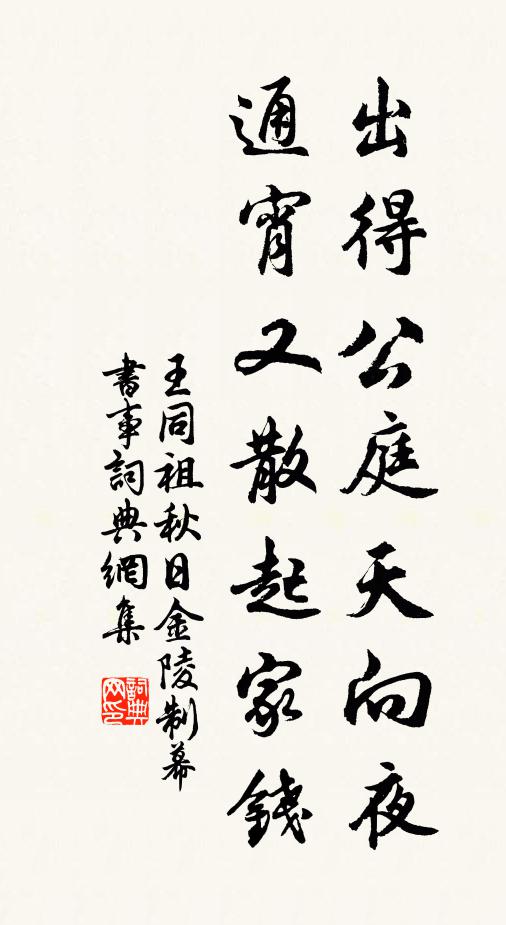 出得公庭天向夜
通宵又散起家錢
王同祖秋日金陵制幕
書事詞典網集
詞典
网印